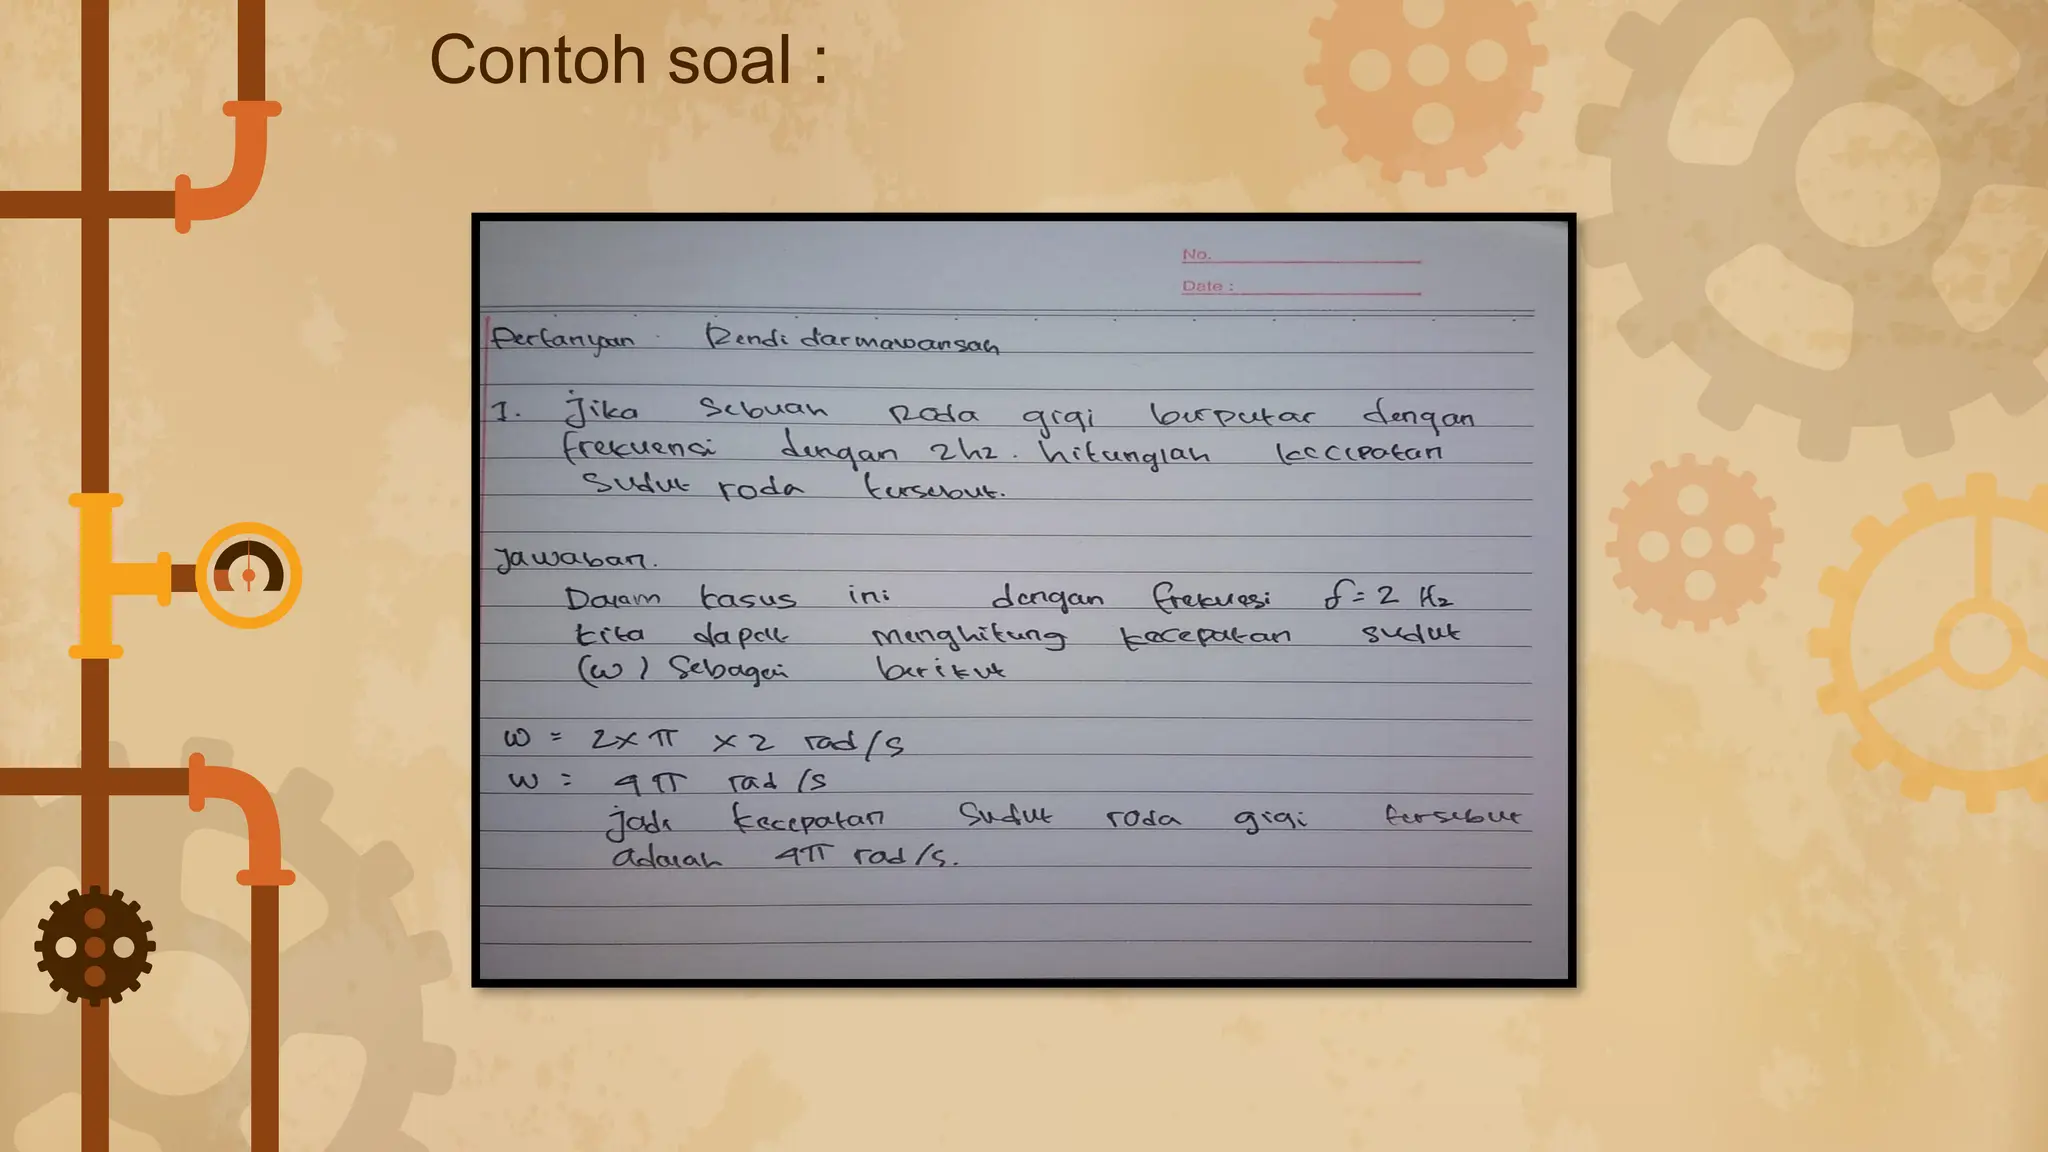 Contoh soal :
No.
Date :
Pertanyaan Rendi darmawansah
1. Jika Sebuah Roda gigi berputar dengan
frekuensi dengan 2hz. hitunglah kecepatan
Sudut roda tersebut.
Jawaban.
Dalam kasus ini dengan frekuesi f = 2 Hz
kita dapat menghitung kecepatan sudut
(ω) Sebagai berikut
ω = 2 x π x 2 rad/s
ω = 4π rad/s
jadi kecepatan Sudut roda gigi tersebut
adalah 4π rad/s.